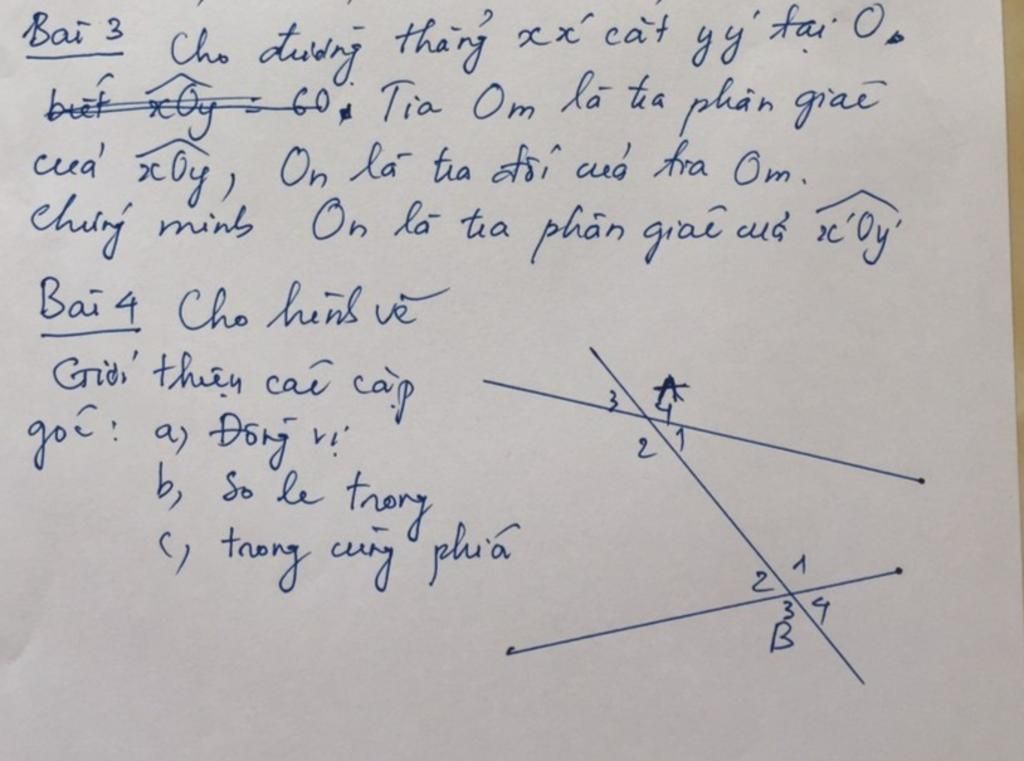 Bài 3 Cho đường thẳng xx' cắt yy' tại O.
biết xOy = 60. Tia Om là tia phân giác
của xOy, On là tia đối của tia Om.
Chứng minh On là tia phân giác của x'Oy'
Bài 4 Cho hình vẽ
Giới thiệu các cặp
góc: a, Đồng vị
b, So le trong
c, trong cùng phía
A
3 4
2 1
2 1
3 4
B